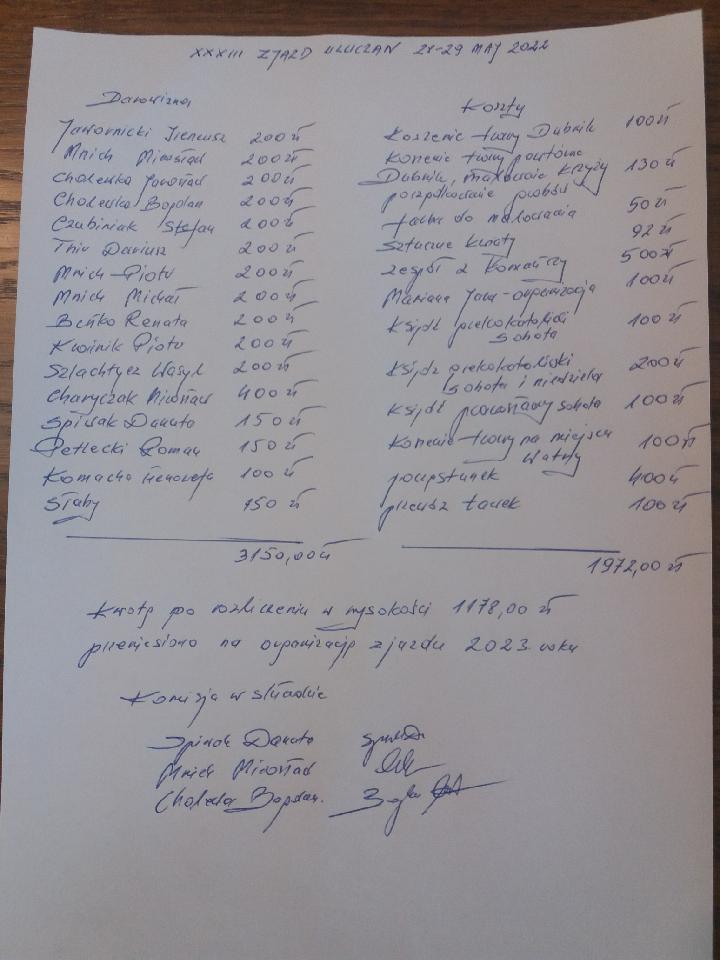 XXXIII ZJAZD ULUCZAN 28-29 MAJ 2022
Darowizna
Jawornicki Ireneusz 200 zł
Mnich Mirosław 200 zł
Cholewka Jarosław 200 zł
Cholewka Bogdan 200 zł
Czubiniak Stefan 200 zł
Dariusz 200 zł
Mnich Piotr 200 zł
Mnich Michał 200 zł
Beńko Renata 200 zł
Kuźnik Piotr 200 zł
Szlachtycz Wasyl 200 zł
Charyczak Mirosław 400 zł
Spiwak Danuta 150 zł
Petlecki Roman 150 zł
Komacha 100 zł
Słaby 150 zł
3150,00 zł
Koszty
Koszenie trawy Dubnik 100 zł
Koszenie trawy powtórne
Dubnik, malowanie krzyży 130 zł
farba do malowania 50 zł
Sztuczne kwiaty 92 zł
Zespół z Komańczy 500 zł
Mariana Jara - organizacja 100 zł
Ksiądz grekokatolicki
sobota 100 zł
Ksiądz grekokatolicki
sobota i niedziela 200 zł
Ksiądz prawosławny sobota 100 zł
Koszenie trawy na miejscu
Watry 100 zł
poczęstunek 400 zł
przewóz ławek 100 zł
1972,00 zł
Kwotę po rozliczeniu w wysokości 1178,00 zł
przeniesiono na organizację zjazdu 2023 roku
Komisja w składzie
Spiwak Danuta
Mnich Mirosław
Cholewka Bogdan.